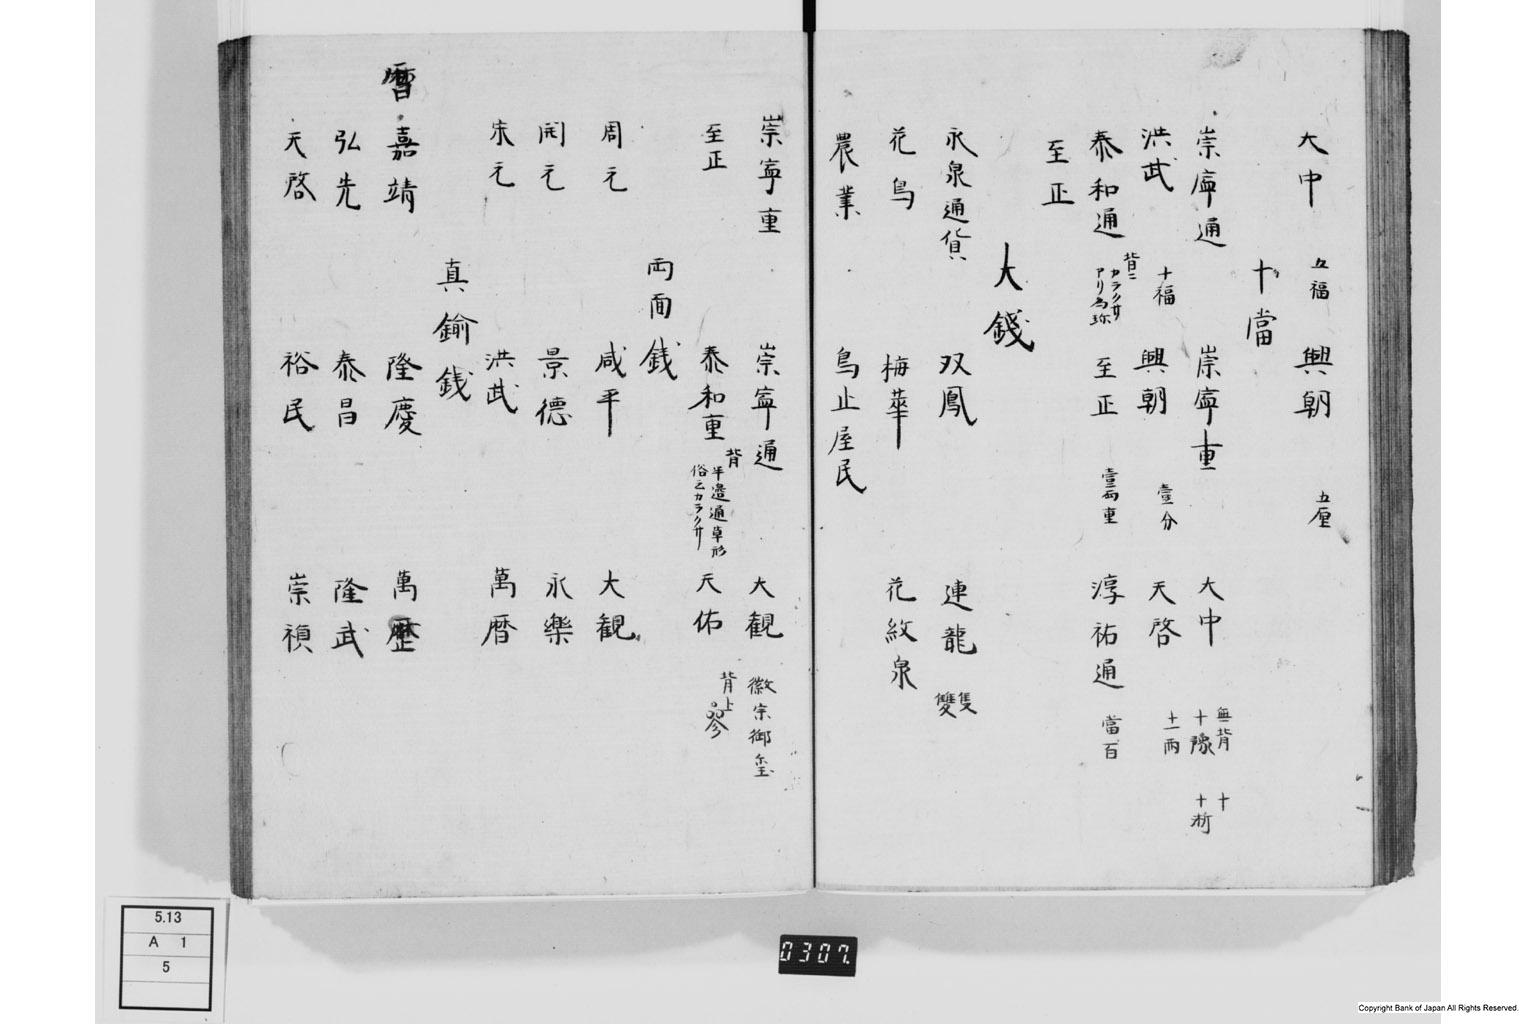 大中 五福 興朝 五厘
十當
崇寧通 崇寧重 大中 無背 十 十豫 十浙 十一兩
洪武 十福 興朝 壹分 天啓
泰和通 背ニ カラクサ アリ為珎 至正 壹兩重 淳祐通 當百
至正
大錢
永泉通貨 双鳳 連龍 隻雙
花鳥 梅華 花紋泉
農業 鳥止屋民
崇寧重 崇寧通 大觀 徽宗御玺
至正 泰和重 背 半邉通草形 俗云カラクサ 天佑 背上
両面銭
周元 咸平 大観
開元 景德 永樂
宋元 洪武 萬暦
真鍮銭
暦 嘉靖 隆慶 萬歷
弘光 泰昌 隆武
天啓 裕民 崇禎
5.13
A 1
5
0307.
Copyright Bank of Japan All Rights Reserved.